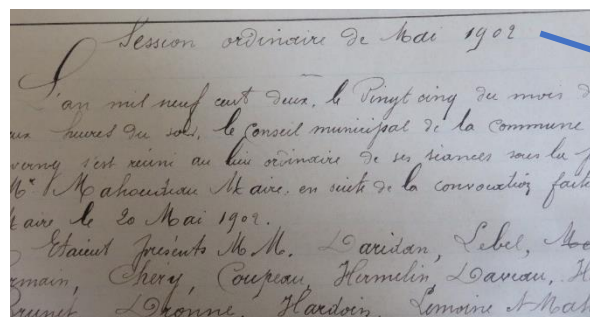 Session ordinaire de Mai 1902
L'an mil neuf cent deux, le Vingt cinq du mois d
heures du soir, le Conseil municipal de la commune
s'est réuni au lieu ordinaire de ses séances sous la p
Mr Mahoudeau Maire, en suite de la convocation faite
Maire le 20 Mai 1902.
Etaient présents M.M. Daridan, Lebel,
rmain, Chéry, Coupeau, Hermelin, Daveau, H
Brunet, Dronne, Hardoin, Lemoine & Mah